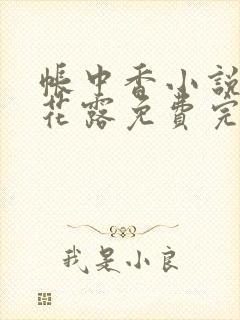 帳中香小說
花露免費完
我是小良